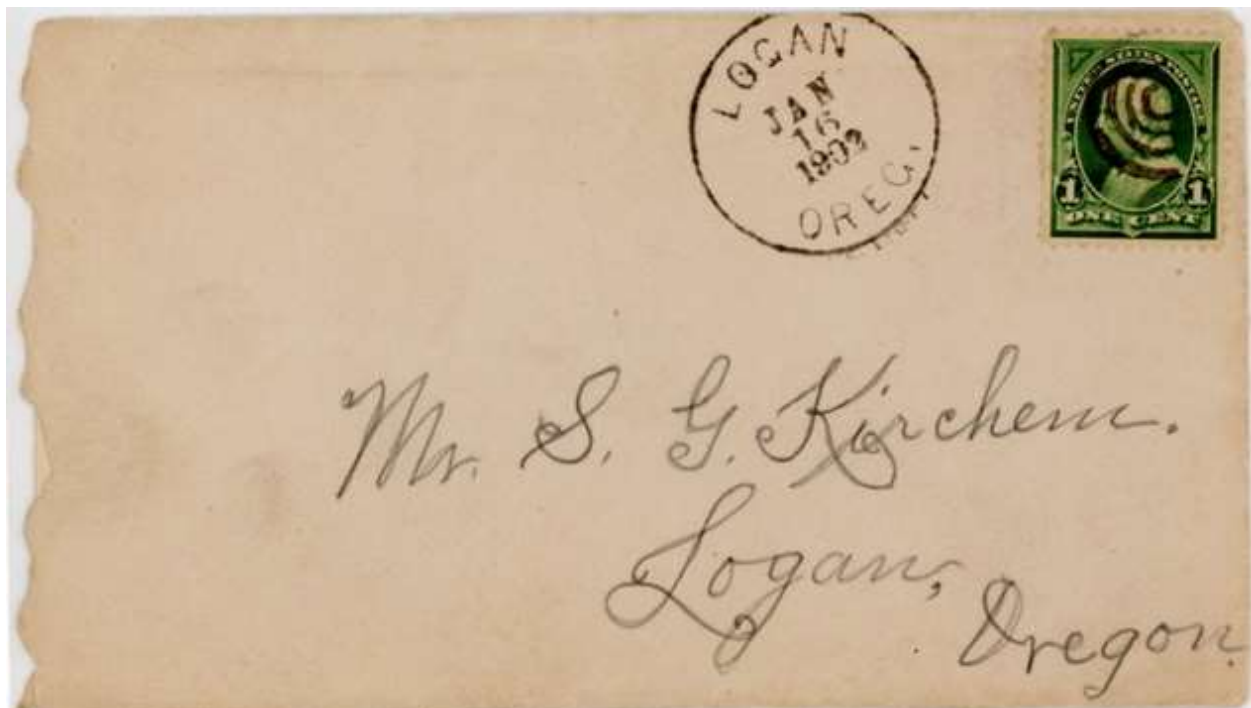 LOGAN
JAN
16
1902
OREG.
UNITED STATES POSTAGE
1 1
ONE CENT
Mr. S. G. Kirchem.
Logan,
Oregon